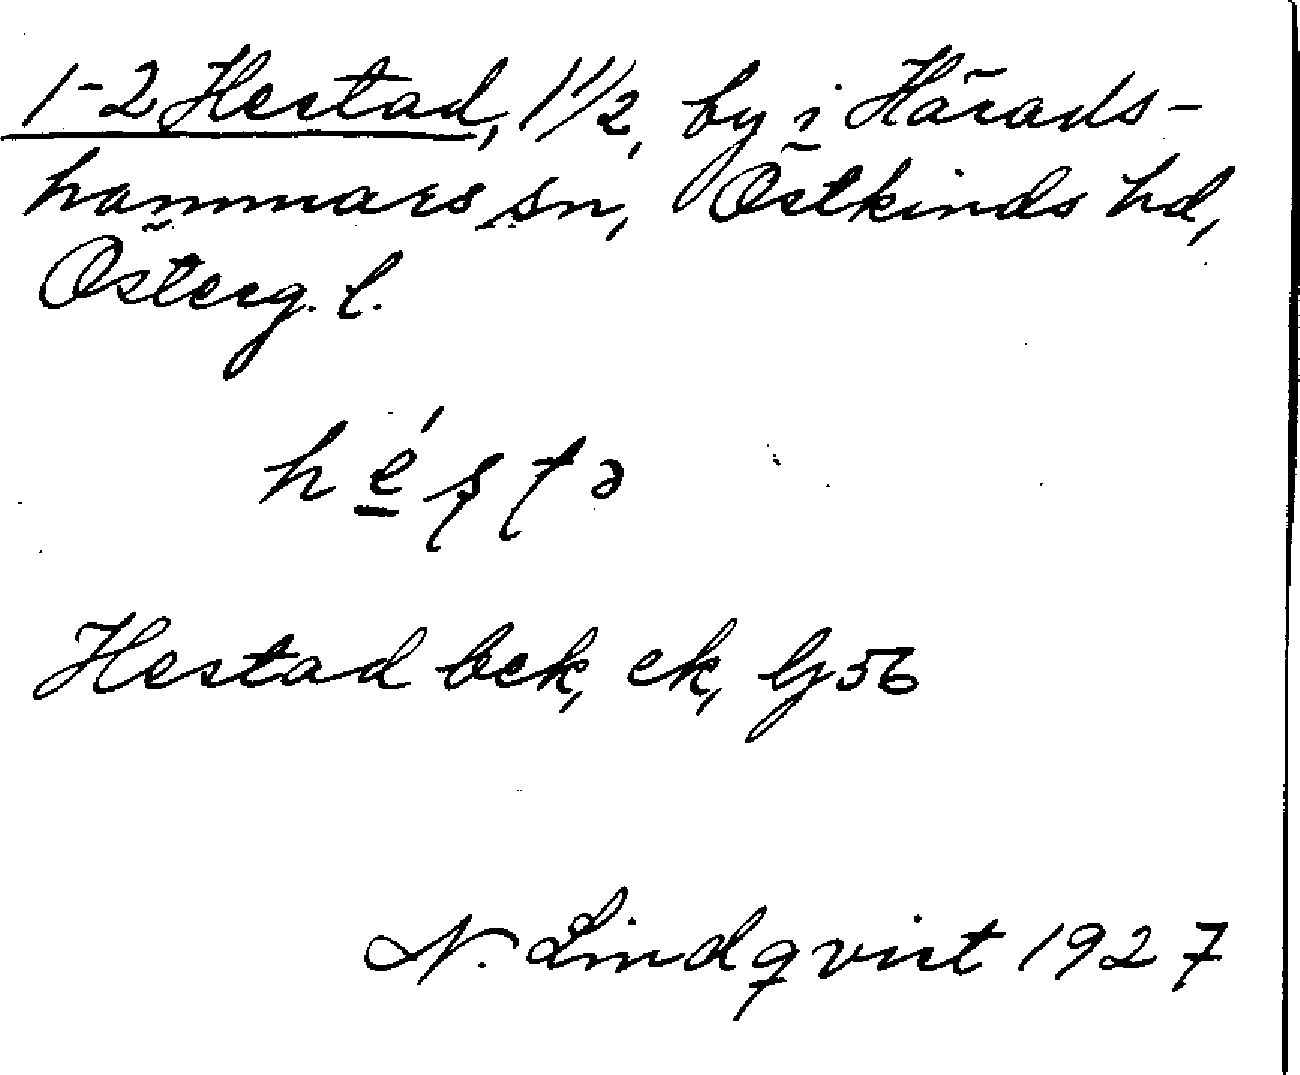 1-2 Hestad, 1 1/2, by i Härads-
hammars sn, Östkinds hd,
Österg. l.
Hestad bek, ek, Gj 56
N. Lindqvist 1927